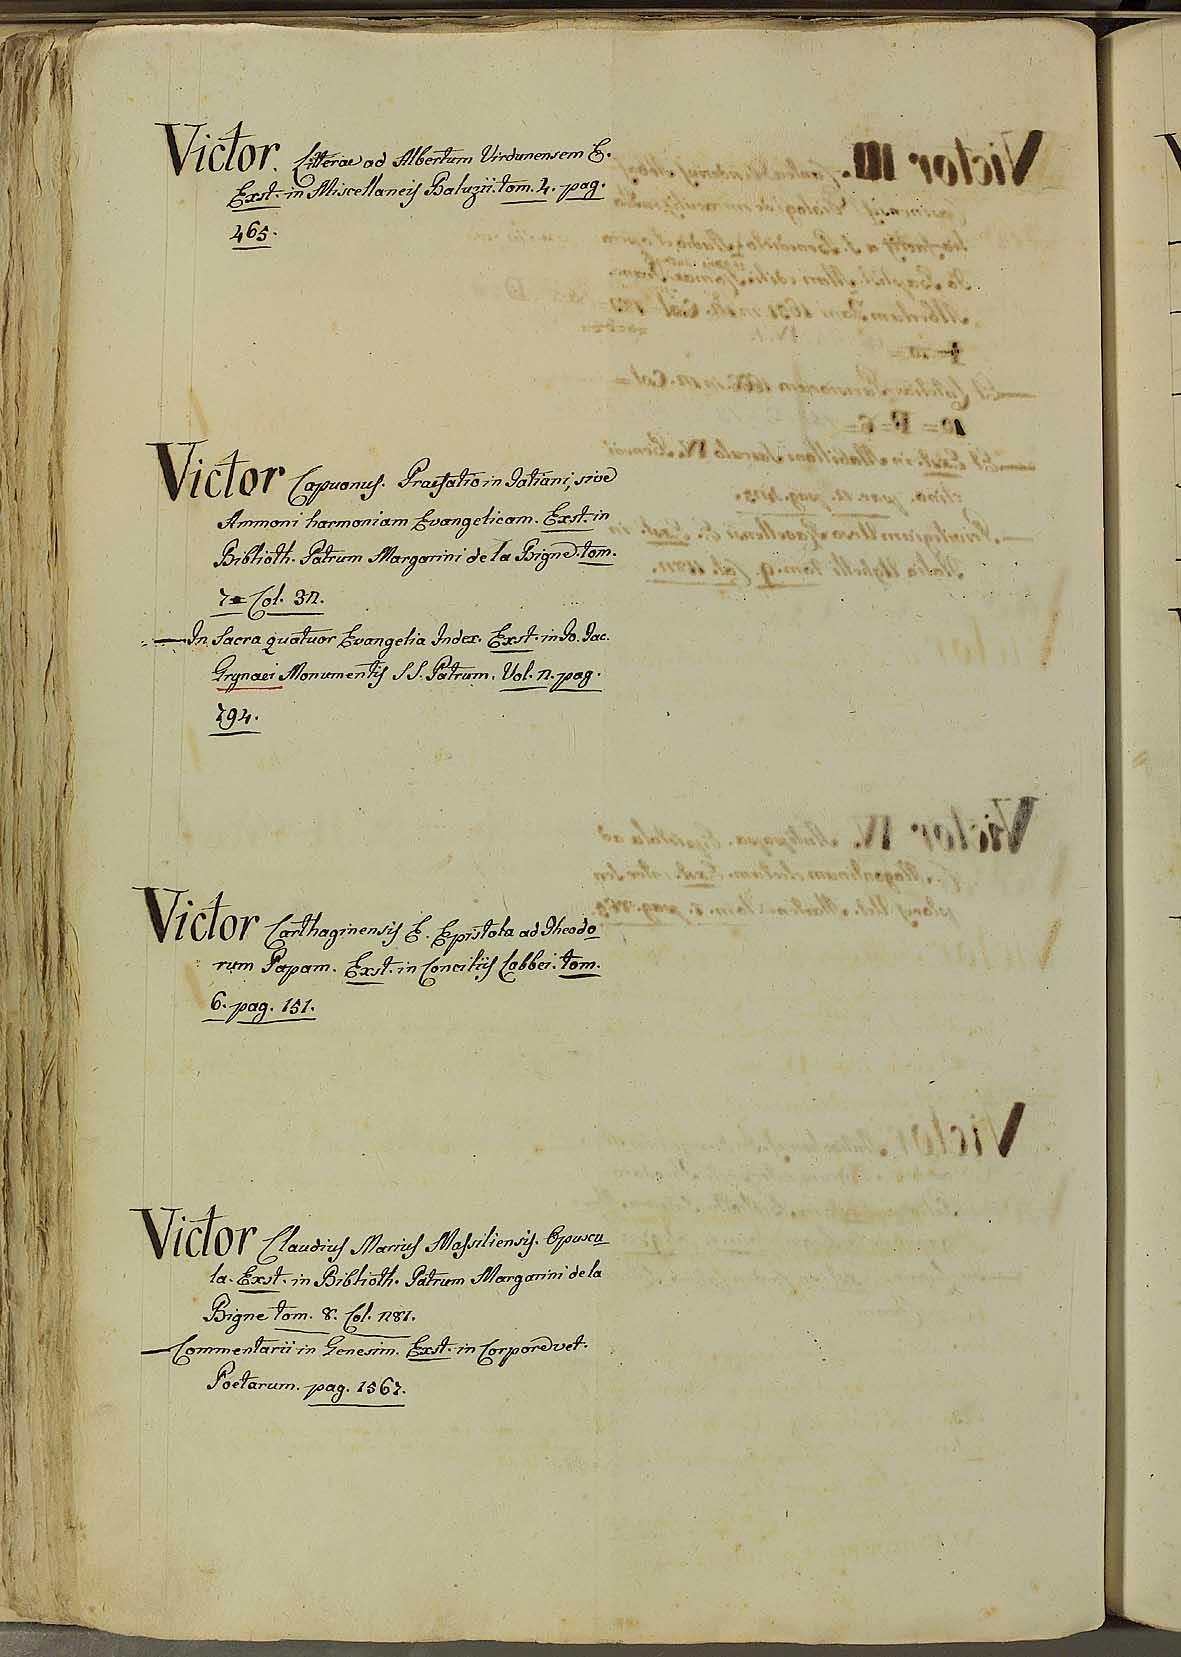 Victor. Litterae ad Albertum Virdunensem E.
Exst. in Miscellaneis Baluzii. tom. 4. pag.
465.
Victor Capuanus. Praefatio in Tatiani, sive
Ammoni harmoniam Evangelicam. Exst. in
Biblioth. Patrum Margarini de la Bigne tom.
7 Col. 32.
— In Sacra quatuor Evangelia Index. Exst. in Jo. Jac.
Grynaei Monumentis SS. Patrum. Vol. 2. pag.
794.
Victor Carthaginensis E. Epistola ad Theodo
rum Papam. Exst. in Conciliis Labbei. tom.
6. pag. 151.
Victor Claudius Marius Massiliensis. Opuscu
la. Exst. in Biblioth. Patrum Margarini de la
Bigne tom. 8. Col. 1281.
— Commentarii in Genesim. Exst. in Corpore vet.
Poetarum. pag. 1567.